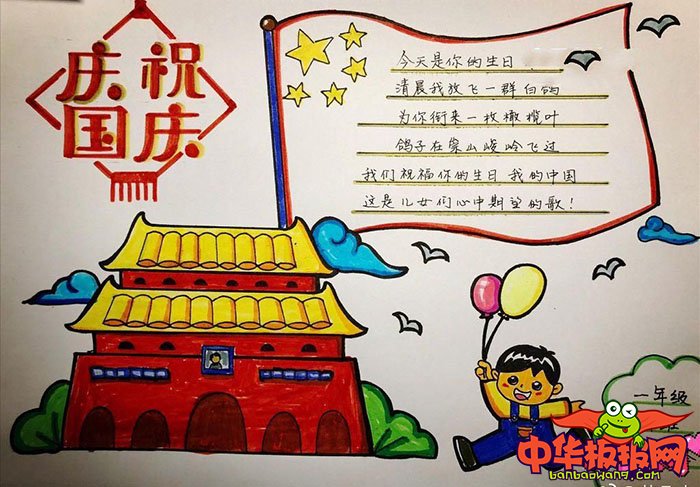 庆祝
国庆
今天是你的生日
清晨我放飞一群白鸽
为你衔来一枚橄榄叶
鸽子在崇山峻岭飞过
我们祝福你的生日 我的中国
这是儿女们心中期望的歌！
一年级
中华板报网
banbaowang.com